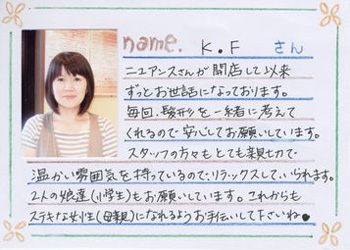 name. K.F さん
ニュアンスさんが開店して以来
ずっとお世話になっております。
毎回、髪形を一緒に考えて
くれるので安心してお願いしています。
スタッフの方々もとても親切で
温かい雰囲気を持っているので、リラックスしていられます。
2人の娘達(小学生)もお願いしています。これからも
ステキな女性(母親)になれるようお手伝いして下さいね